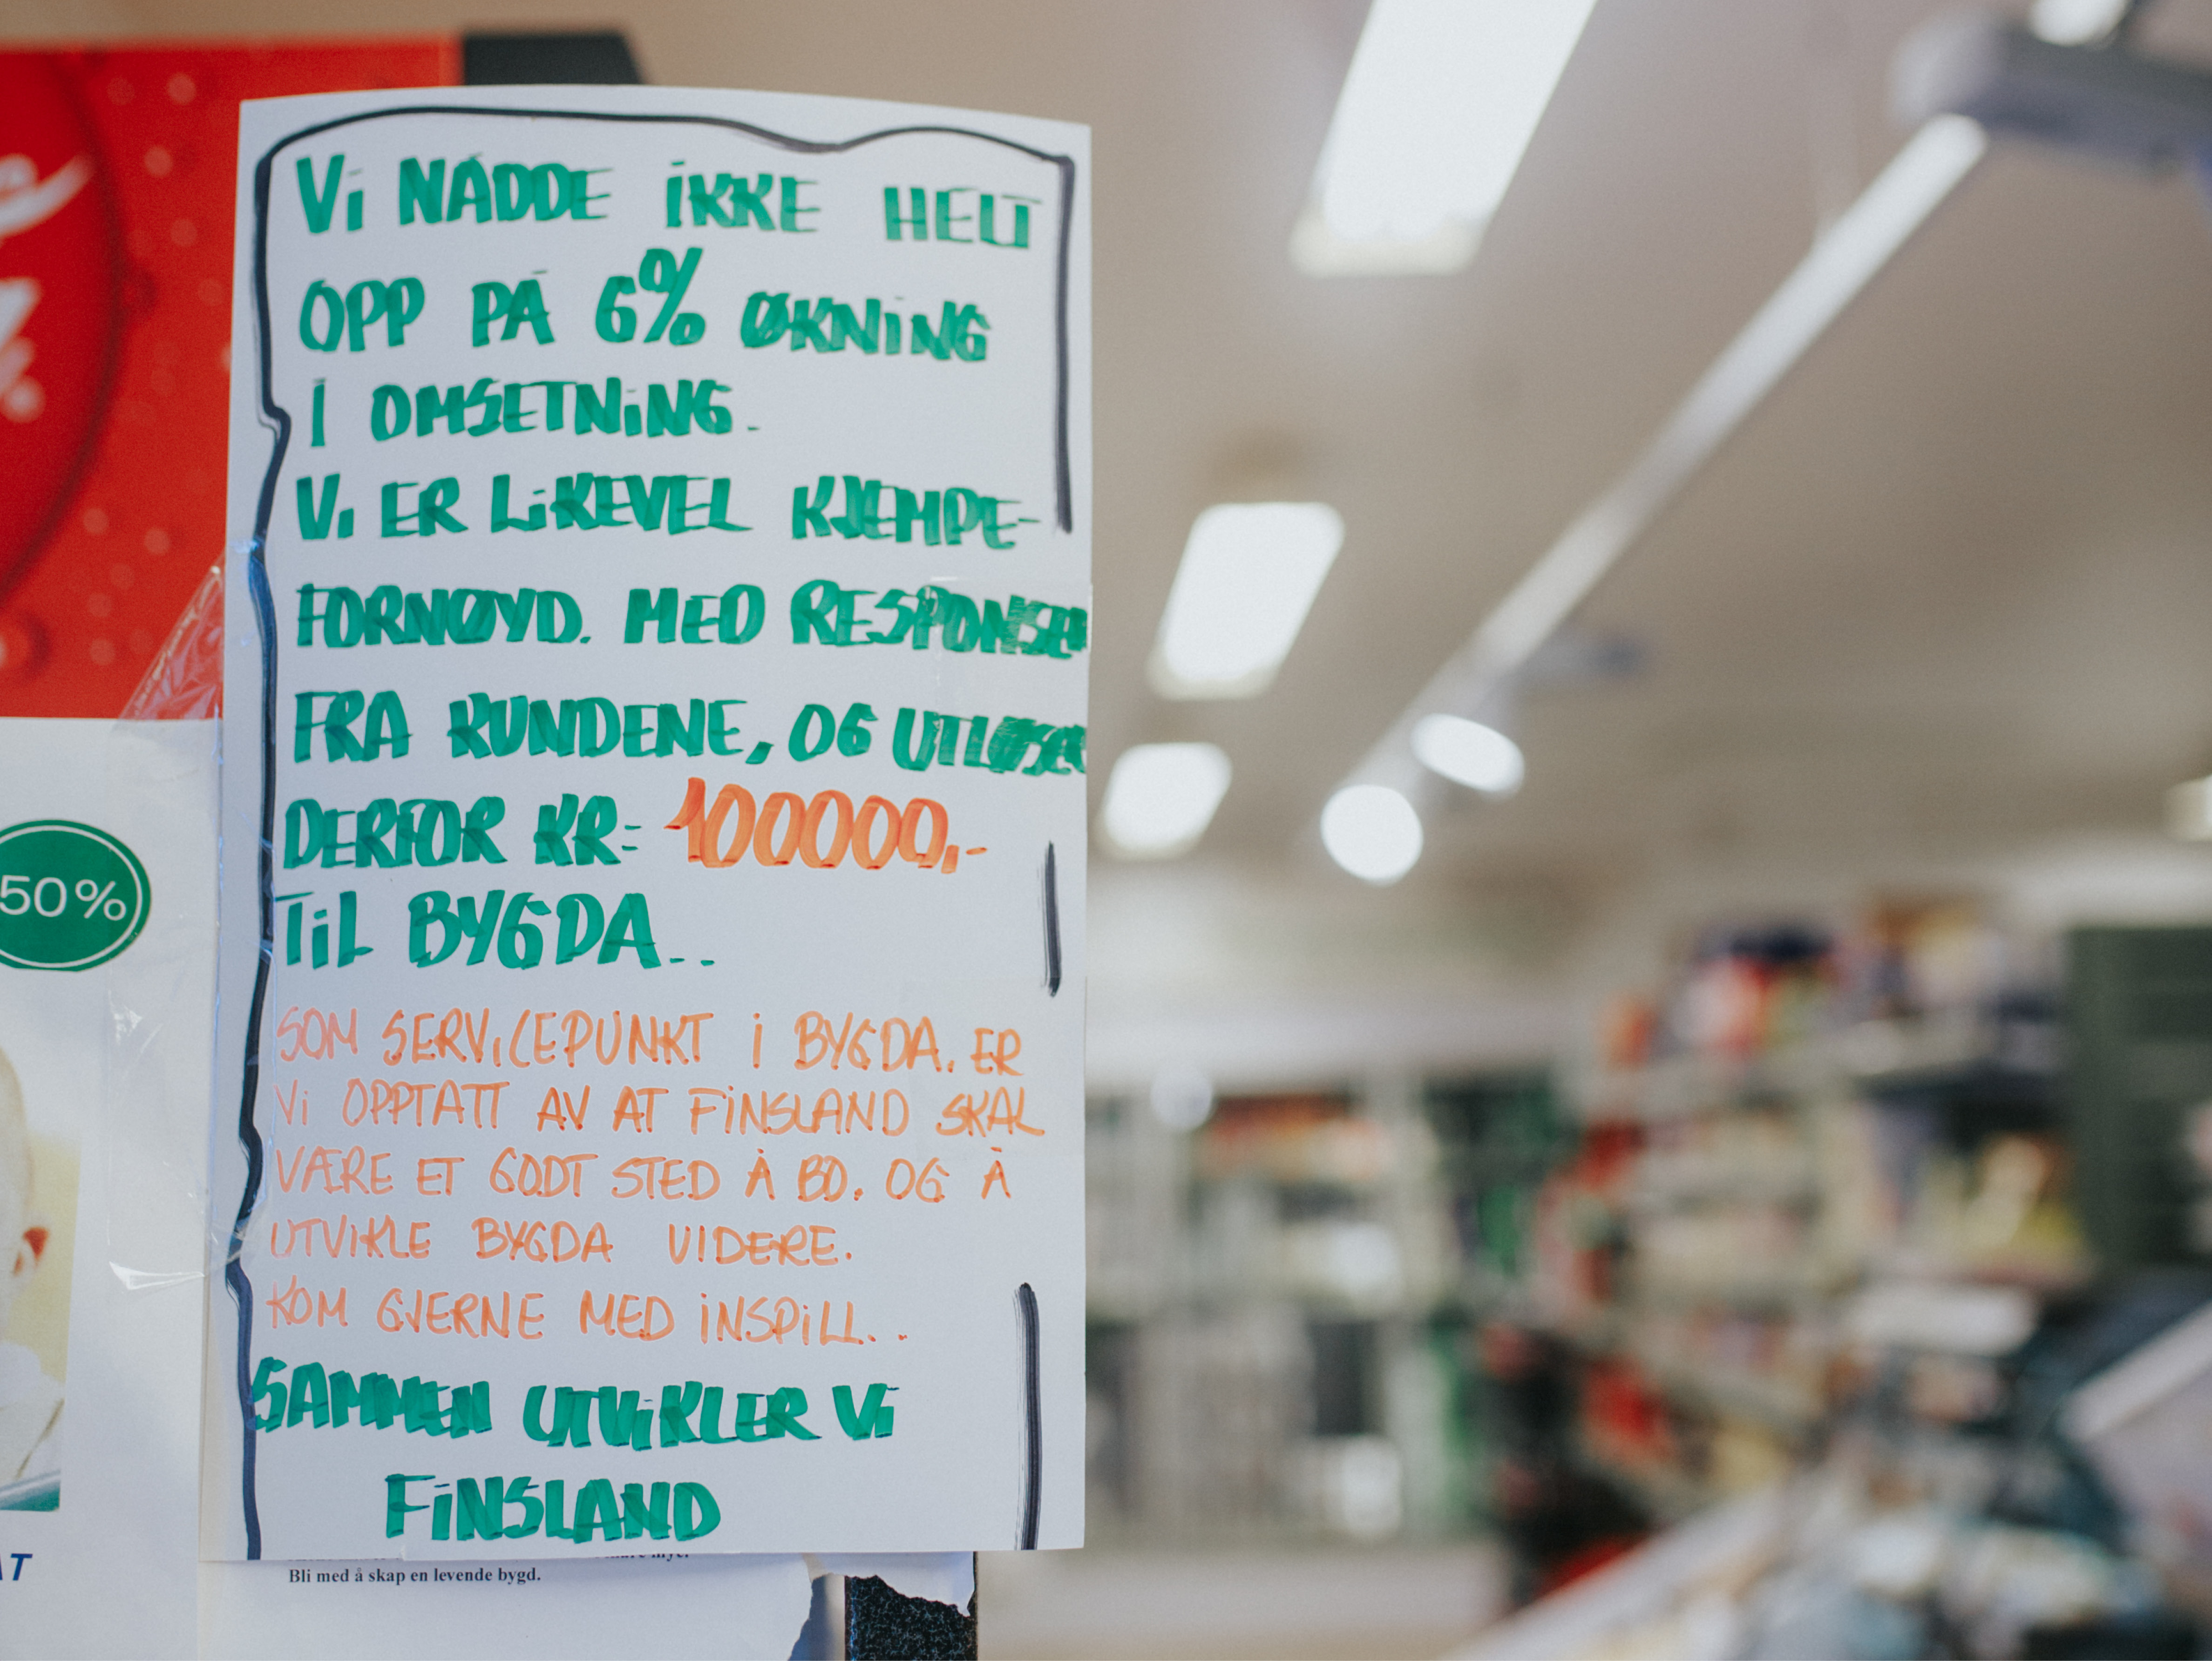 Vi NÅDDE IKKE HELT
OPP PÅ 6% ØKNING
I OMSETNING.
Vi ER LIKEVEL KJEMPE-
FORNØYD. MED RESPONSEN
FRA KUNDENE, OG UTLØSER
DERFOR KR: 100000,-
TIL BYGDA..
SOM SERVICEPUNKT I BYGDA. ER
Vi OPPTATT AV AT FINSLAND SKAL
VÆRE ET GODT STED Å BO. OG Å
UTVIKLE BYGDA VIDERE.
KOM GJERNE MED INSPILL..
SAMMEN UTVIKLER Vi
FINSLAND
50%
Bli med å skap en levende bygd.